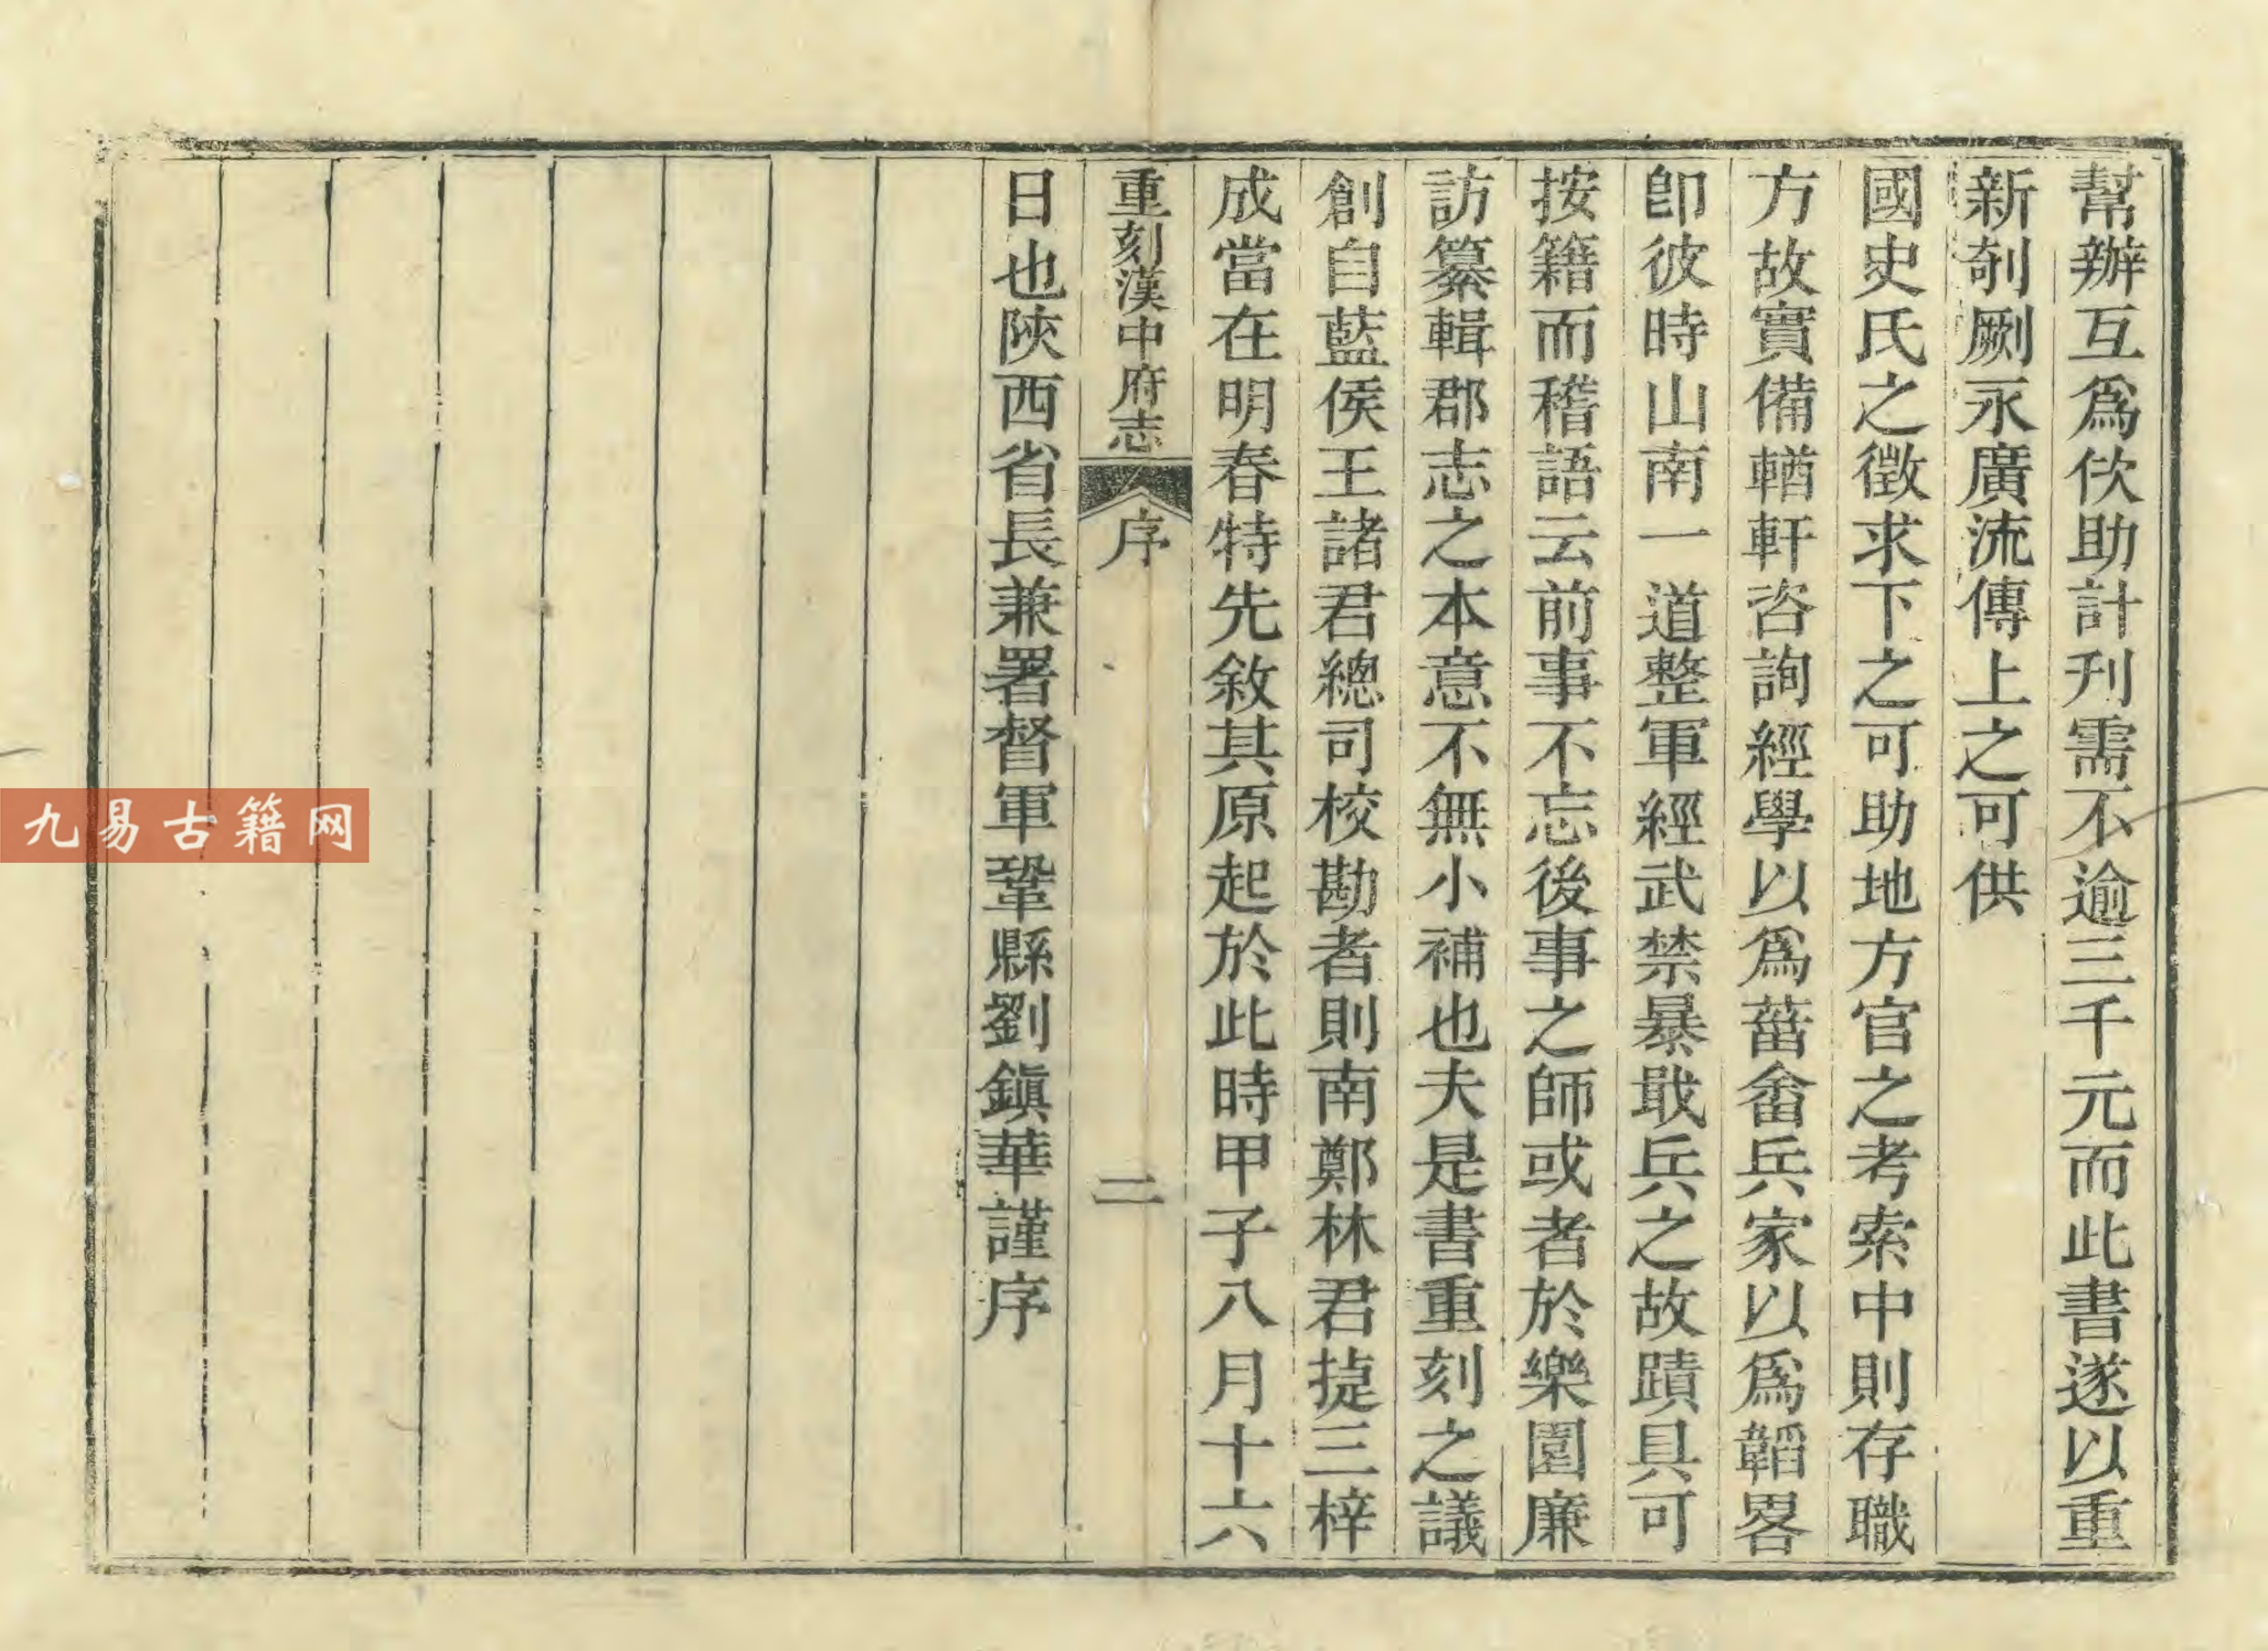 幫辦互爲佽助計刋需不逾三千元而此書遂以重
新剞劂永廣流傳上之可供
國史氏之徵求下之可助地方官之考索中則存職
方故實備輶軒咨詢經學以爲菑畬兵家以爲韜畧
卽彼時山南一道整軍經武禁暴戢兵之故蹟具可
按籍而稽語云前事不忘後事之師或者於樂園廉
訪纂輯郡志之本意不無小補也夫是書重刻之議
創自藍侯王諸君總司校勘者則南鄭林君㨗三梓
成當在明春特先敘其原起於此時甲子八月十六
重刻漢中府志 序 二
日也陝西省長兼署督軍鞏縣劉鎭華謹序
九易古籍网